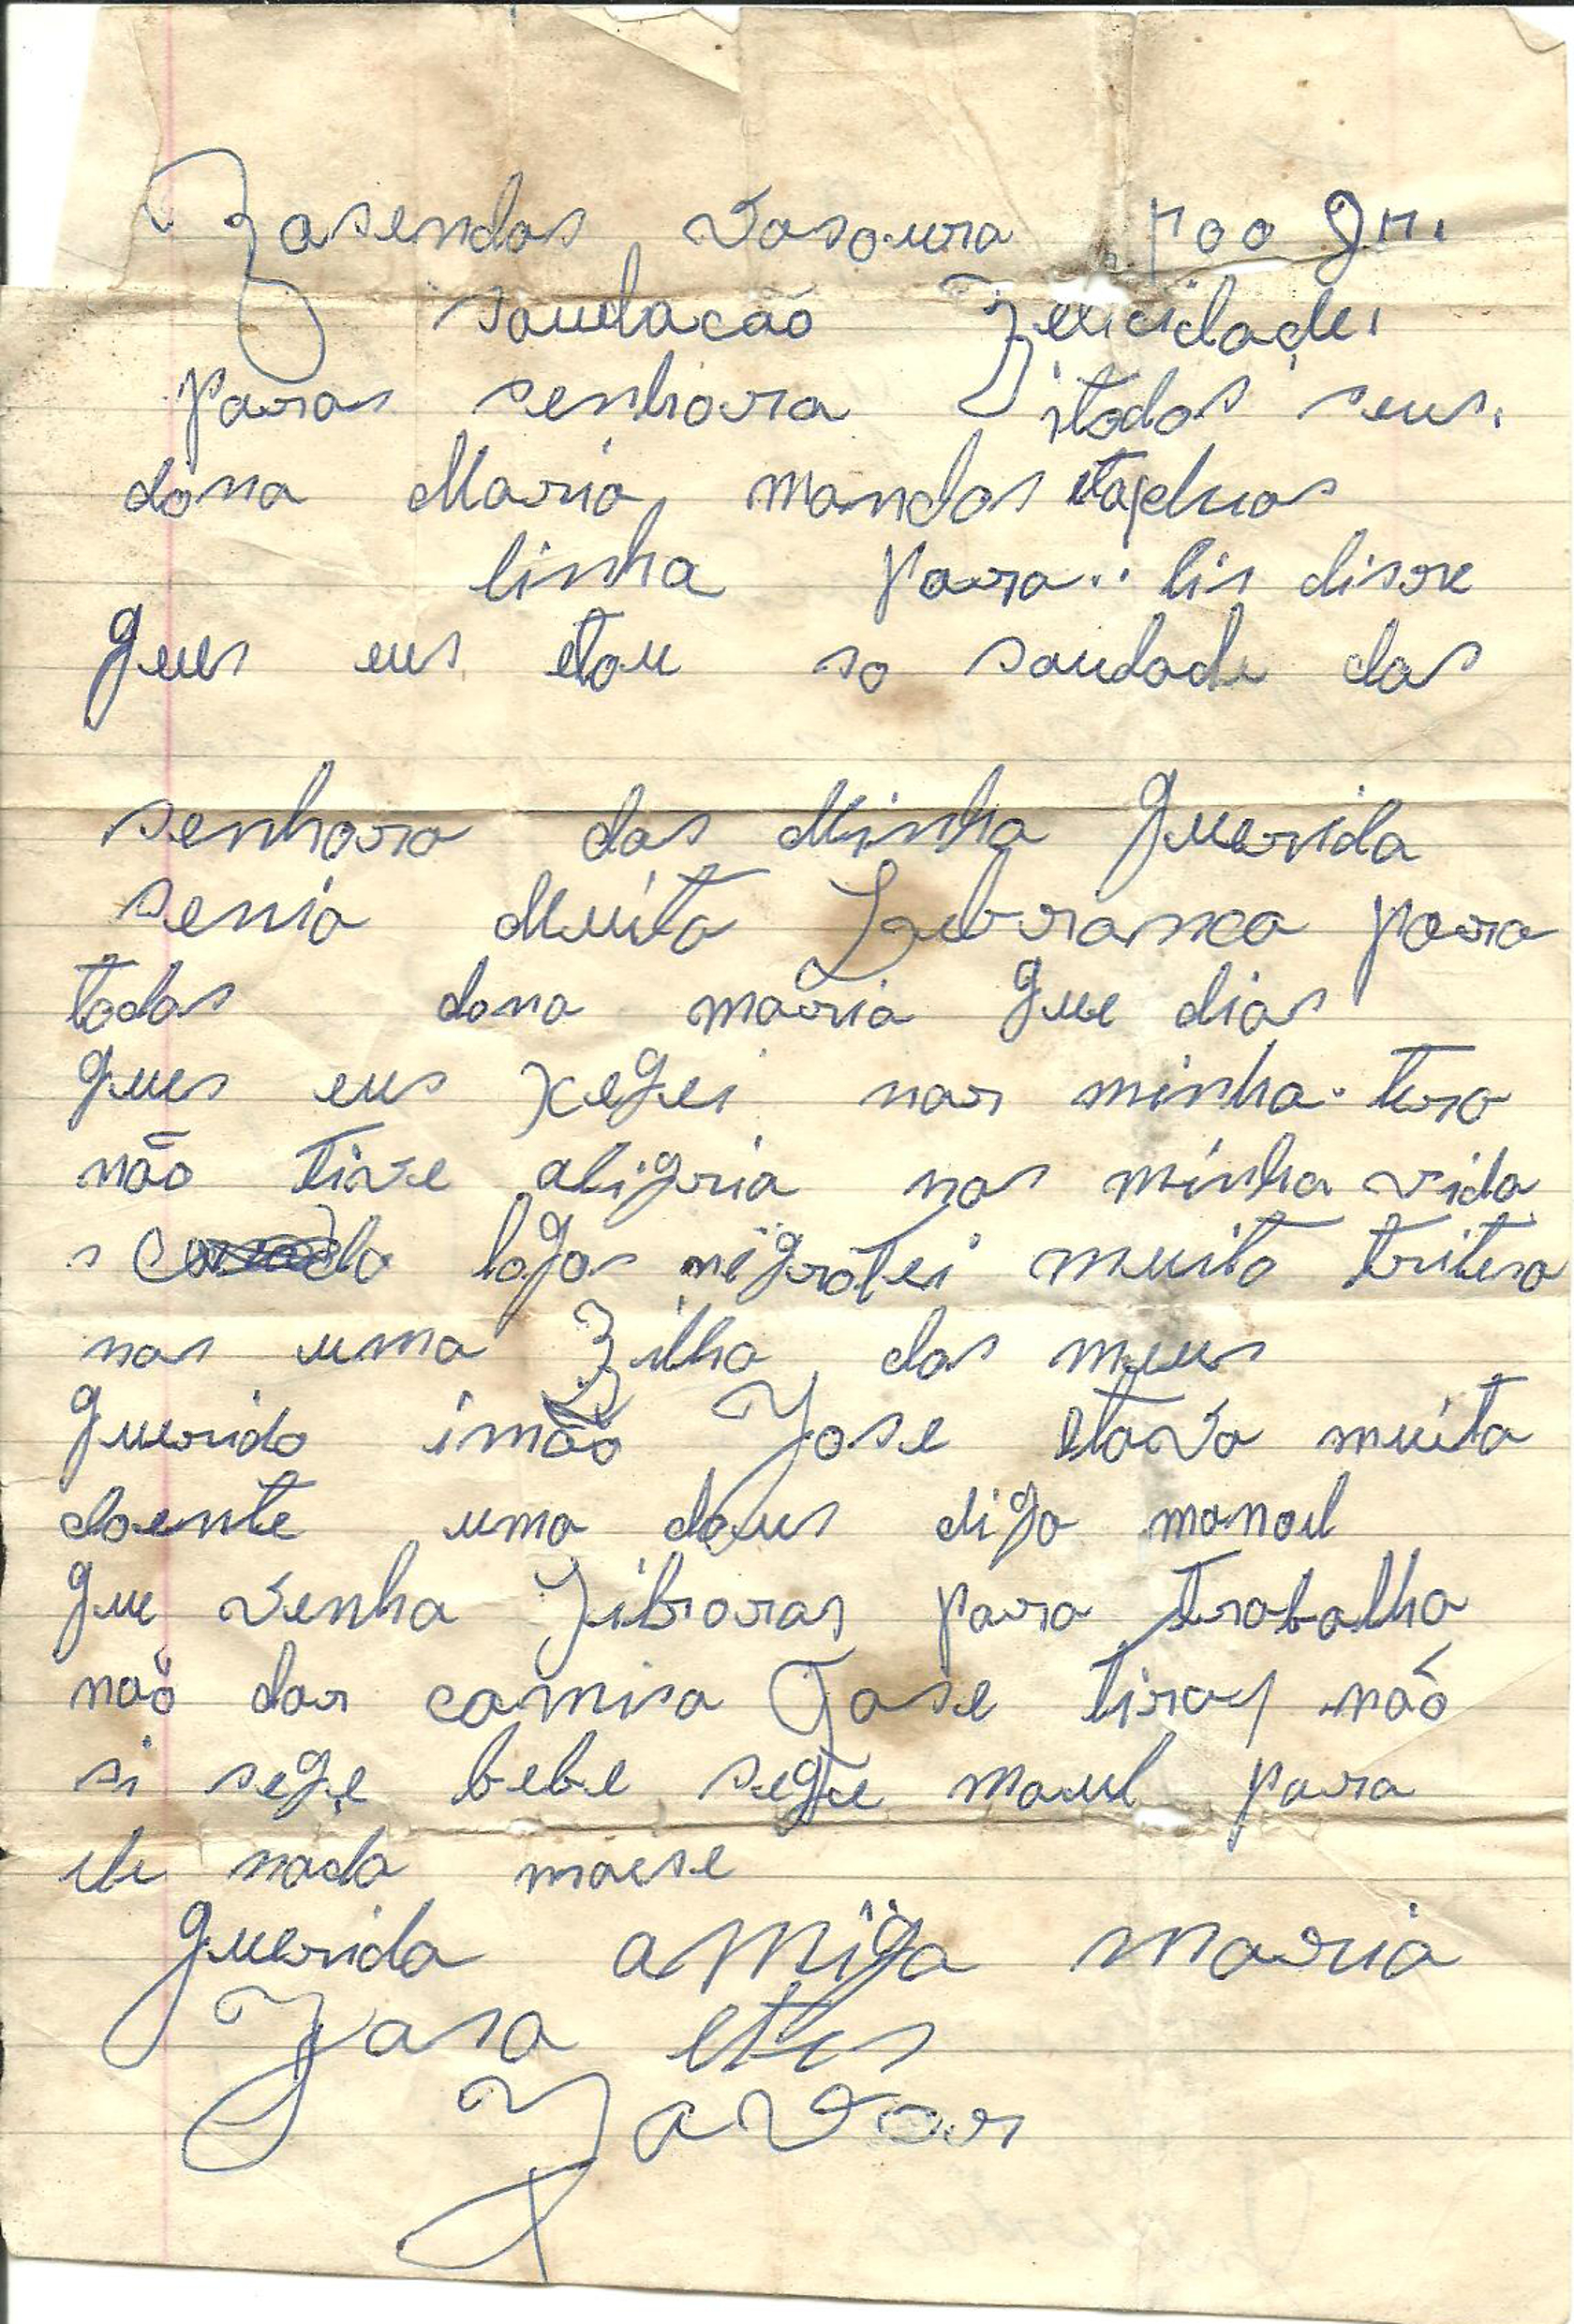 Fasendas Vasoura
saudacão Felicidade,
paras senhora itodos seus.
dona Maria mandos
linha para.. lis disre
ques eus etou so saudade das
senhora das Minha querida
senia Muita Lebransa para
todas dona maria que dias
ques eus xegei nas minha tera
não tive aligria nas minha vida
s logos negrotei muito tritesa
nas uma Filha das meus
querido imão Jose etava muita
doente uma deus diga manoel
que venha para trabalha
não dar camisa Jose tiray não
si sege bebe segue maul para
ele nada maese
querida amiga maria
Fasa etes
Favor